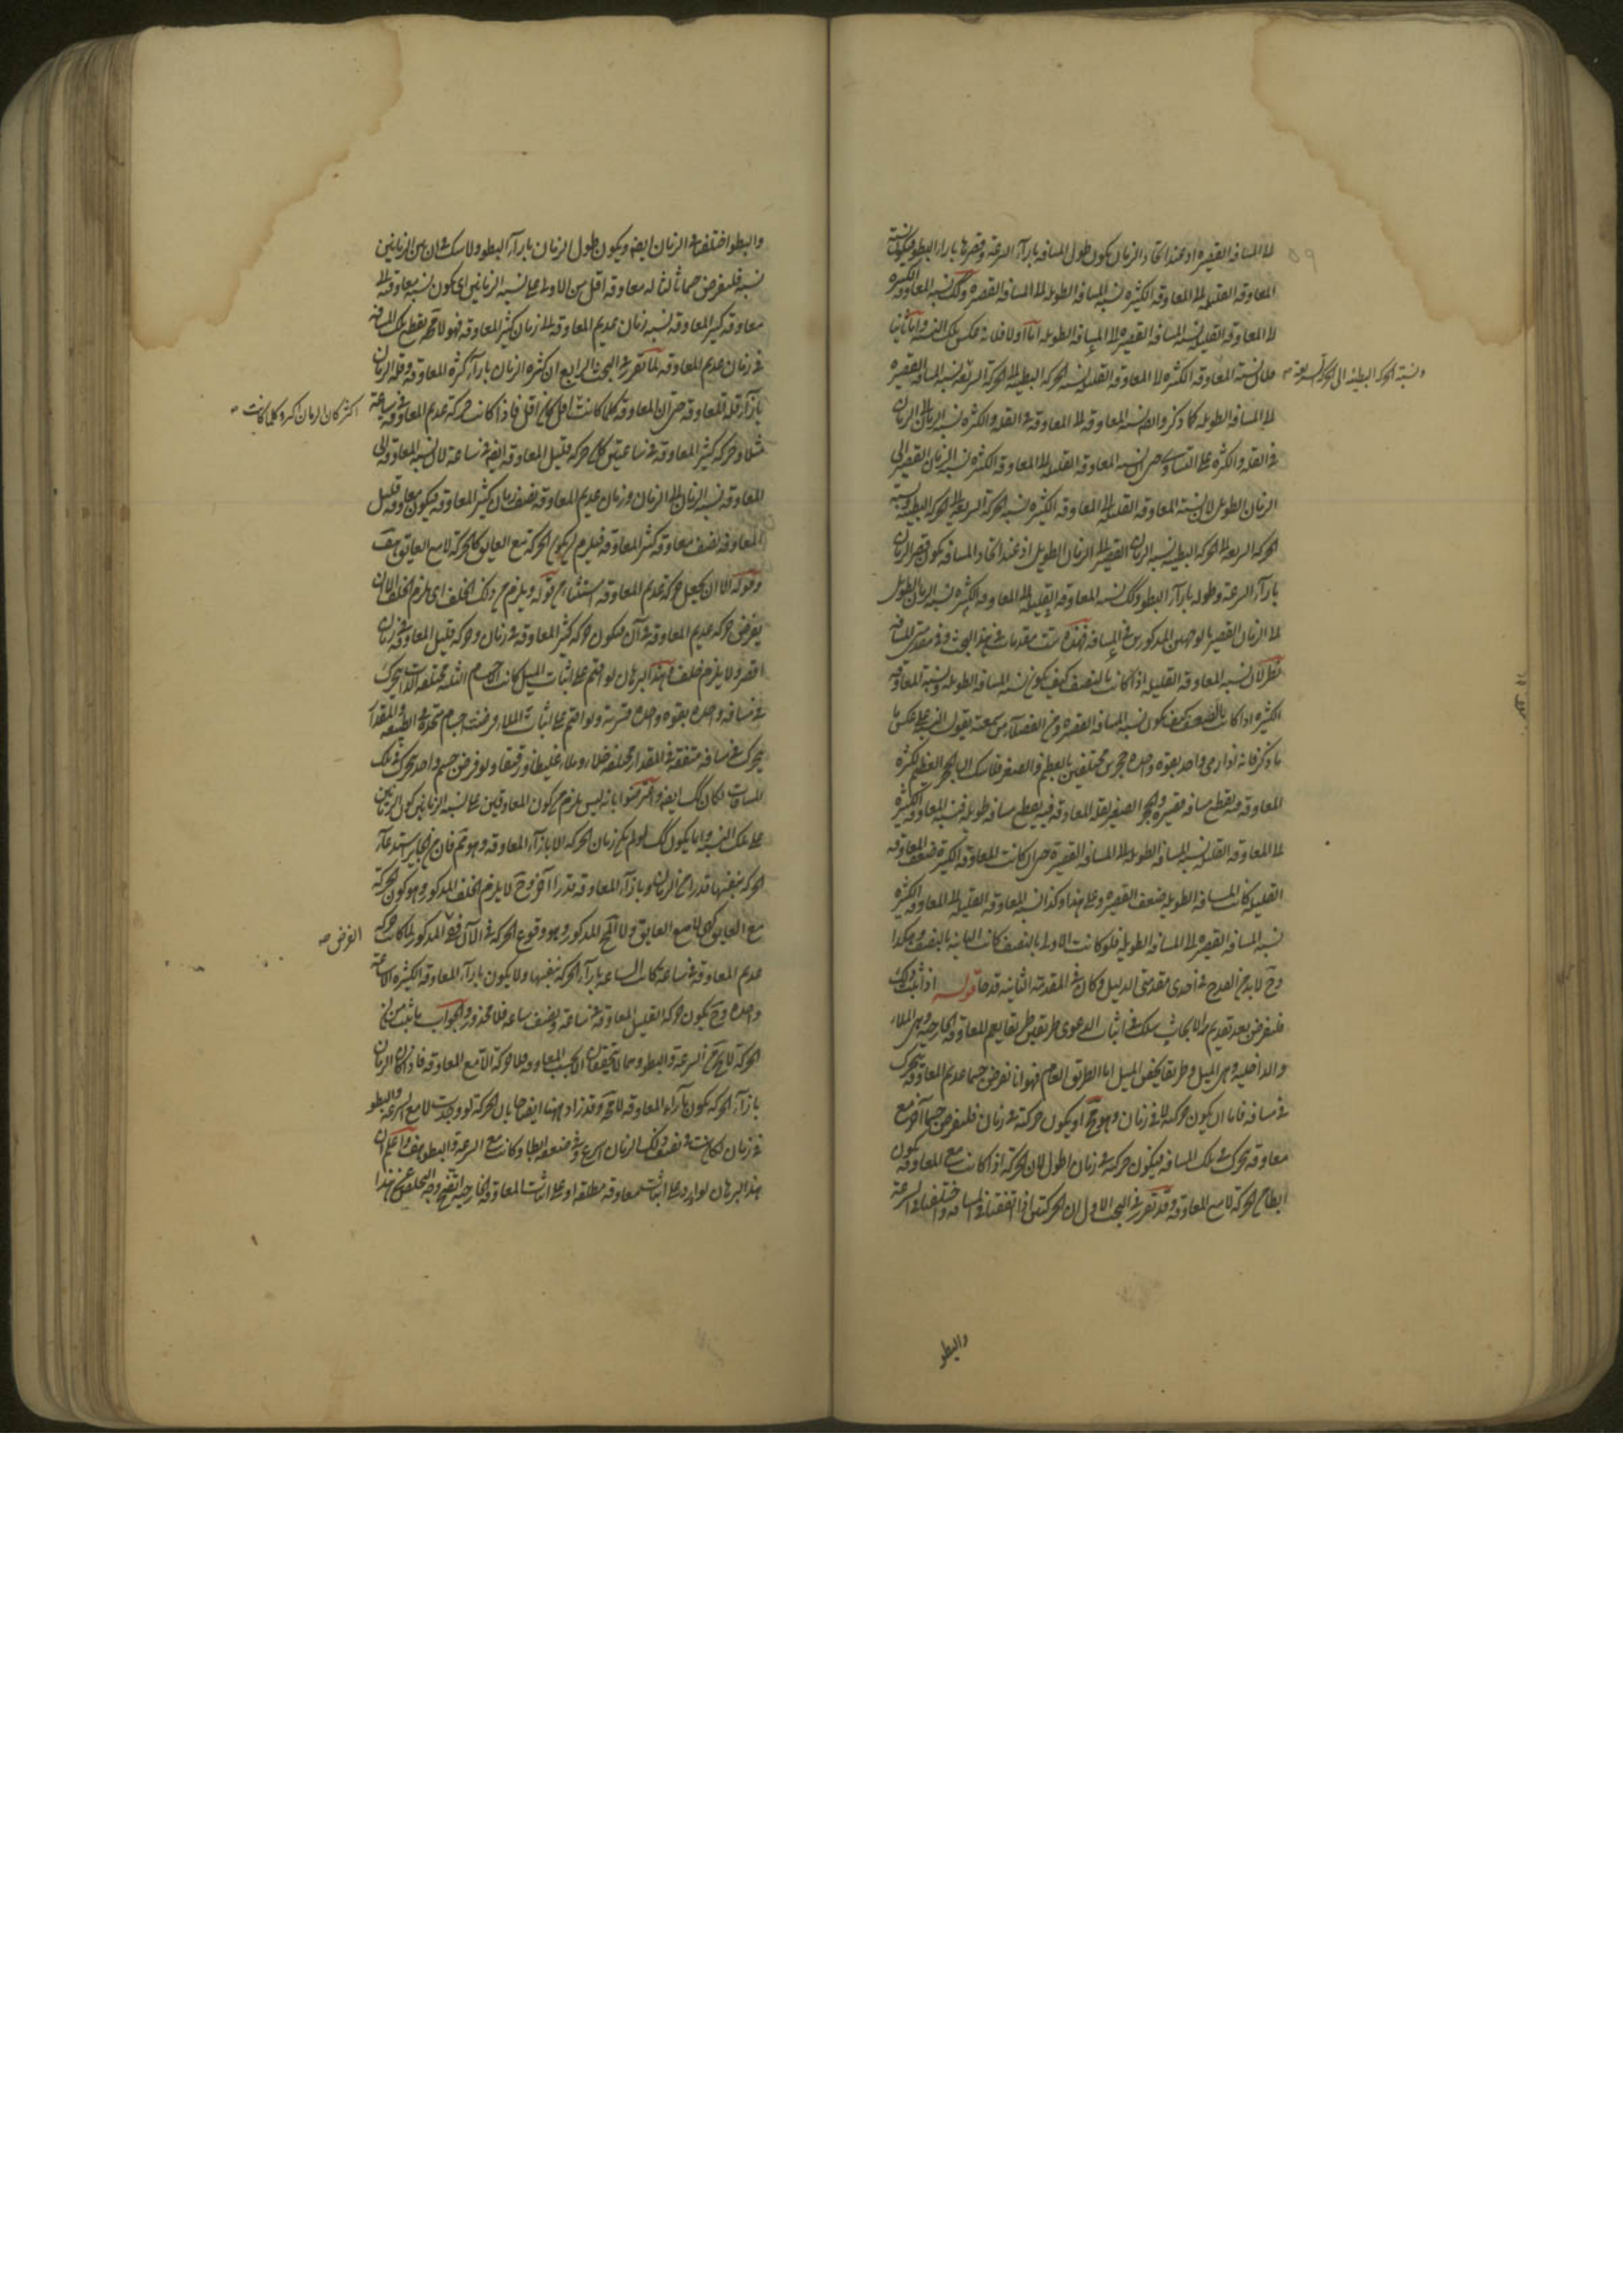 الى المسافه القصيره اذ عند اتحاد الزمان يكون طول المسافه بازآء السرعة وقصرها بازاء البطو فيكون نسبة
المعاوقه القليله الى المعاوقه الكثيره نسبة المسافه الطويله الى المسافه القصيره وكك نسبة المعاوقه الكثيره
الى المعاوقه القليله نسبة المسافه القصيره الى المسافه الطويله اما اولا فلانه عكس تلك النسبه واما ثانيا
فلان نسبة المعاوقه الكثيره الى المعاوقه القليله نسبه الحركه البطيئه الى الحركه السريعه نسبه المسافه القصيره
ونسبة الحركه البطيئه الى الحركه السريعة صح
الى المسافه الطويله كما ذكر وايضا نسبه المعاوقه الى المعاوقه فى القله والكثره نسبه الزمان الى الزمان
فى القله والكثره على التساوى حتى ان نسبه المعاوقه القليله الى المعاوقه الكثيره نسبه الزمان القصير الى
الزمان الطويل لان نسبة المعاوقه القليله الى المعاوقه الكثيره نسبه الحركه السريعه الى الحركه البطيئه ونسبة
الحركه السريعه الى الحركه البطيئه نسبه الزمان القصير الى الزمان الطويل اذ عند اتحاد المسافه يكون قصر الزمان
بازآء السرعة وطوله بازآء البطو وكك نسبه المعاوقه القليله الى المعاوقه الكثيره نسبه الزمان الطويل
الى الزمان القصير بالوجهين المذكورين فى المسافه فهذه ست مقدمات فى هذا البحث وفى مقدمتى المسافه
نظر لان نسبه المعاوقه القليله اذا كانت بالنصف كيف يكون نسبه المسافه الطويله ونسبه المعاوقه
الكثيره اذا كانت بالضعف كيف يكون نسبه المسافه القصيره ومن الفضلآء من سمعته يقول النسبة على عكس ما
ما ذكر فانه اذا رمى واحد بقوة واحده حجرين مختلفين بالعظم والصغر فلا شك ان الحجر العظيم لكثرة
المعاوقه فيه يقطع مسافه قصيره والحجر الصغير لقله المعاوقه فيه يقطع مسافه طويله فنسبة المعاوقه الكثيره
الى المعاوقه القليله نسبه المسافه الطويله الى المسافه القصيره حتى ان كانت المعاوقه الكثيره ضعف المعاوقه
القليله كانت المسافه الطويله ضعف القصيره وعلى هذا وكذا نسبه المعاوقه القليله الى المعاوقه الكثيره
نسبه المسافه القصيره الى المسافه الطويله فلو كانت الاولى بالنصف كانت الثانيه بالنصف وهكذا
وح لا بد من القدح فى احدى مقدمتى الدليل وكان فى المقدمة الثانيه قدحا قوله اذا ثبت ذلك
فلنفرض بعد تقديم هذه الابحاث يسلك فى اثبات الدعوى طريقين طريقا يعم المعاوقه الخارجيه وهى الملاء
والداخليه وهى الميل وطريقا يخص الميل اما الطريق العام فهو انا نفرض جسما عديم المعاوقه يتحرك
فى مسافه فاما ان يكون حركته لا فى زمان وهو مح او يكون حركته فى زمان فلنفرض جسما آخر مع
معاوقه يتحرك فى تلك المسافه فيكون حركته فى زمان اطول لان الحركه اذا كانت مع المعاوقه يكون
ابطا من الحركه لا مع المعاوقه وقد تقرر فى البحث الاول ان الحركتين اذا اتفقتا فى المسافه واختلفتا فى السرعة
والبطو
والبطو اختلفتا فى الزمان ايضا ويكون طول الزمان بازآء البطو ولا شك ان بين الزمانين
نسبة فلنفرض جسما ثالثا له معاوقه اقل من الاولى على نسبه الزمانين اى يكون نسبه معاوقته الى
معاوقه كثير المعاوقه نسبه زمان عديم المعاوقه الى زمان كثير المعاوقه فهو لا محه يقطع تلك المسافه
فى زمان عديم المعاوقه لما تقرر فى البحث الرابع ان كثره الزمان بازآء كثره المعاوقه وقله الزمان
بازآء قله المعاوقه حتى ان المعاوقه كلما كانت اقل كان اقل فاذا كانت حركه عديم المعاوقه فى ساعة
اكثر كان الزمان اكثر وكلما كانت صح
مثلا وحركه كثير المعاوقه فى ساعتين كان حركه قليل المعاوقه ايضا فى ساعة لان نسبه المعاوقه الى
المعاوقه نسبه الزمان الى الزمان وزمان عديم المعاوقه نصف زمان كثير المعاوقه فيكون معاوقه قليل
المعاوقه نصف معاوقه كثير المعاوقه فيلزم ان يكون الحركه مع العايق كالحركه لا مع العايق هف
وقوله الا ان يجعل حركه عديم المعاوقه استثناء من قوله ويلزم من ذلك الخلف اى يلزم الخلف الا ان
يفرض حركه عديم المعاوقه فى آن فيكون حركه كثير المعاوقه فى زمان وحركه قليل المعاوقه فى زمان
اقصر ولا يلزم خلف وهذا البرهان لو اقيم على اثبات الميل كانت الاجسام الثلثه مختلفه الذات يتحرك
فى مسافه واحده بقوه واحده قسرية ولو اقيم على اثبات الملاء فرضت اجسام متحده فى الطبيعه والمقدار
يتحرك فى مسافه متفقة فى المقدار مختلفه خلاء وملاء غليظا ورقيقا ولو فرض جسم واحد يتحرك فى تلك
المسافات لكان كك ايضا واعترضوا بانه ليس يلزم من كون المعاوقتين على نسبه الزمانين كون الزمانين
على تلك النسبه وانما يكون كك لو لم يكن زمان الحركه الا بازآء المعاوقه وهو مم فان من الجايز استدعآء
الحركه بنفسها قدرا من الزمان وبازآء المعاوقه قدرا آخر وح لا يلزم الخلف المذكور وهو كون الحركه
مع العايق كهى لا مع العايق ولا المح المذكور وهو وقوع الحركه فى الآن ففى المذكور لما كانت حركه
الفرض صح
عديم المعاوقه فى ساعة كانت الساعه بازآء الحركه بنفسها ولا يكون بازآء المعاوقه الكثيره الا ساعة
واحده وح يكون حركه القليل المعاوقه فى ساعة ونصف ساعه فلا محذور والجواب ما ثبت من ان
الحركه لا يخ من السرعة والبطو وهما لا يتحققان الا بحسب المعاوقه فلا حركه الا مع المعاوقه فاذن كان الزمان
بازآء الحركه يكون بازآء المعاوقه لا محه وقد زاد ههنا ايضاحا بان الحركه لو وجدت لا مع السرعة والبطو
فى زمان لكانت فى نصف ذلك الزمان اسرع وفى ضعفه ابطا وكانت مع السرعة والبطو هف واعلم ان
هذا البرهان لو اورد على اثبات معاوقه مطلقه او على اثبات المعاوقه الخارجيه اتضح وجه التخلص عن هذا